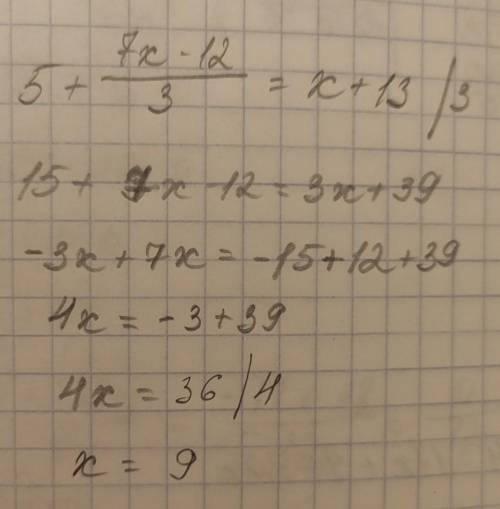 5 + (7x - 12)/3 = x + 13 /3
15 + 7x - 12 = 3x + 39
-3x + 7x = -15 + 12 + 39
4x = -3 + 39
4x = 36 /4
x = 9